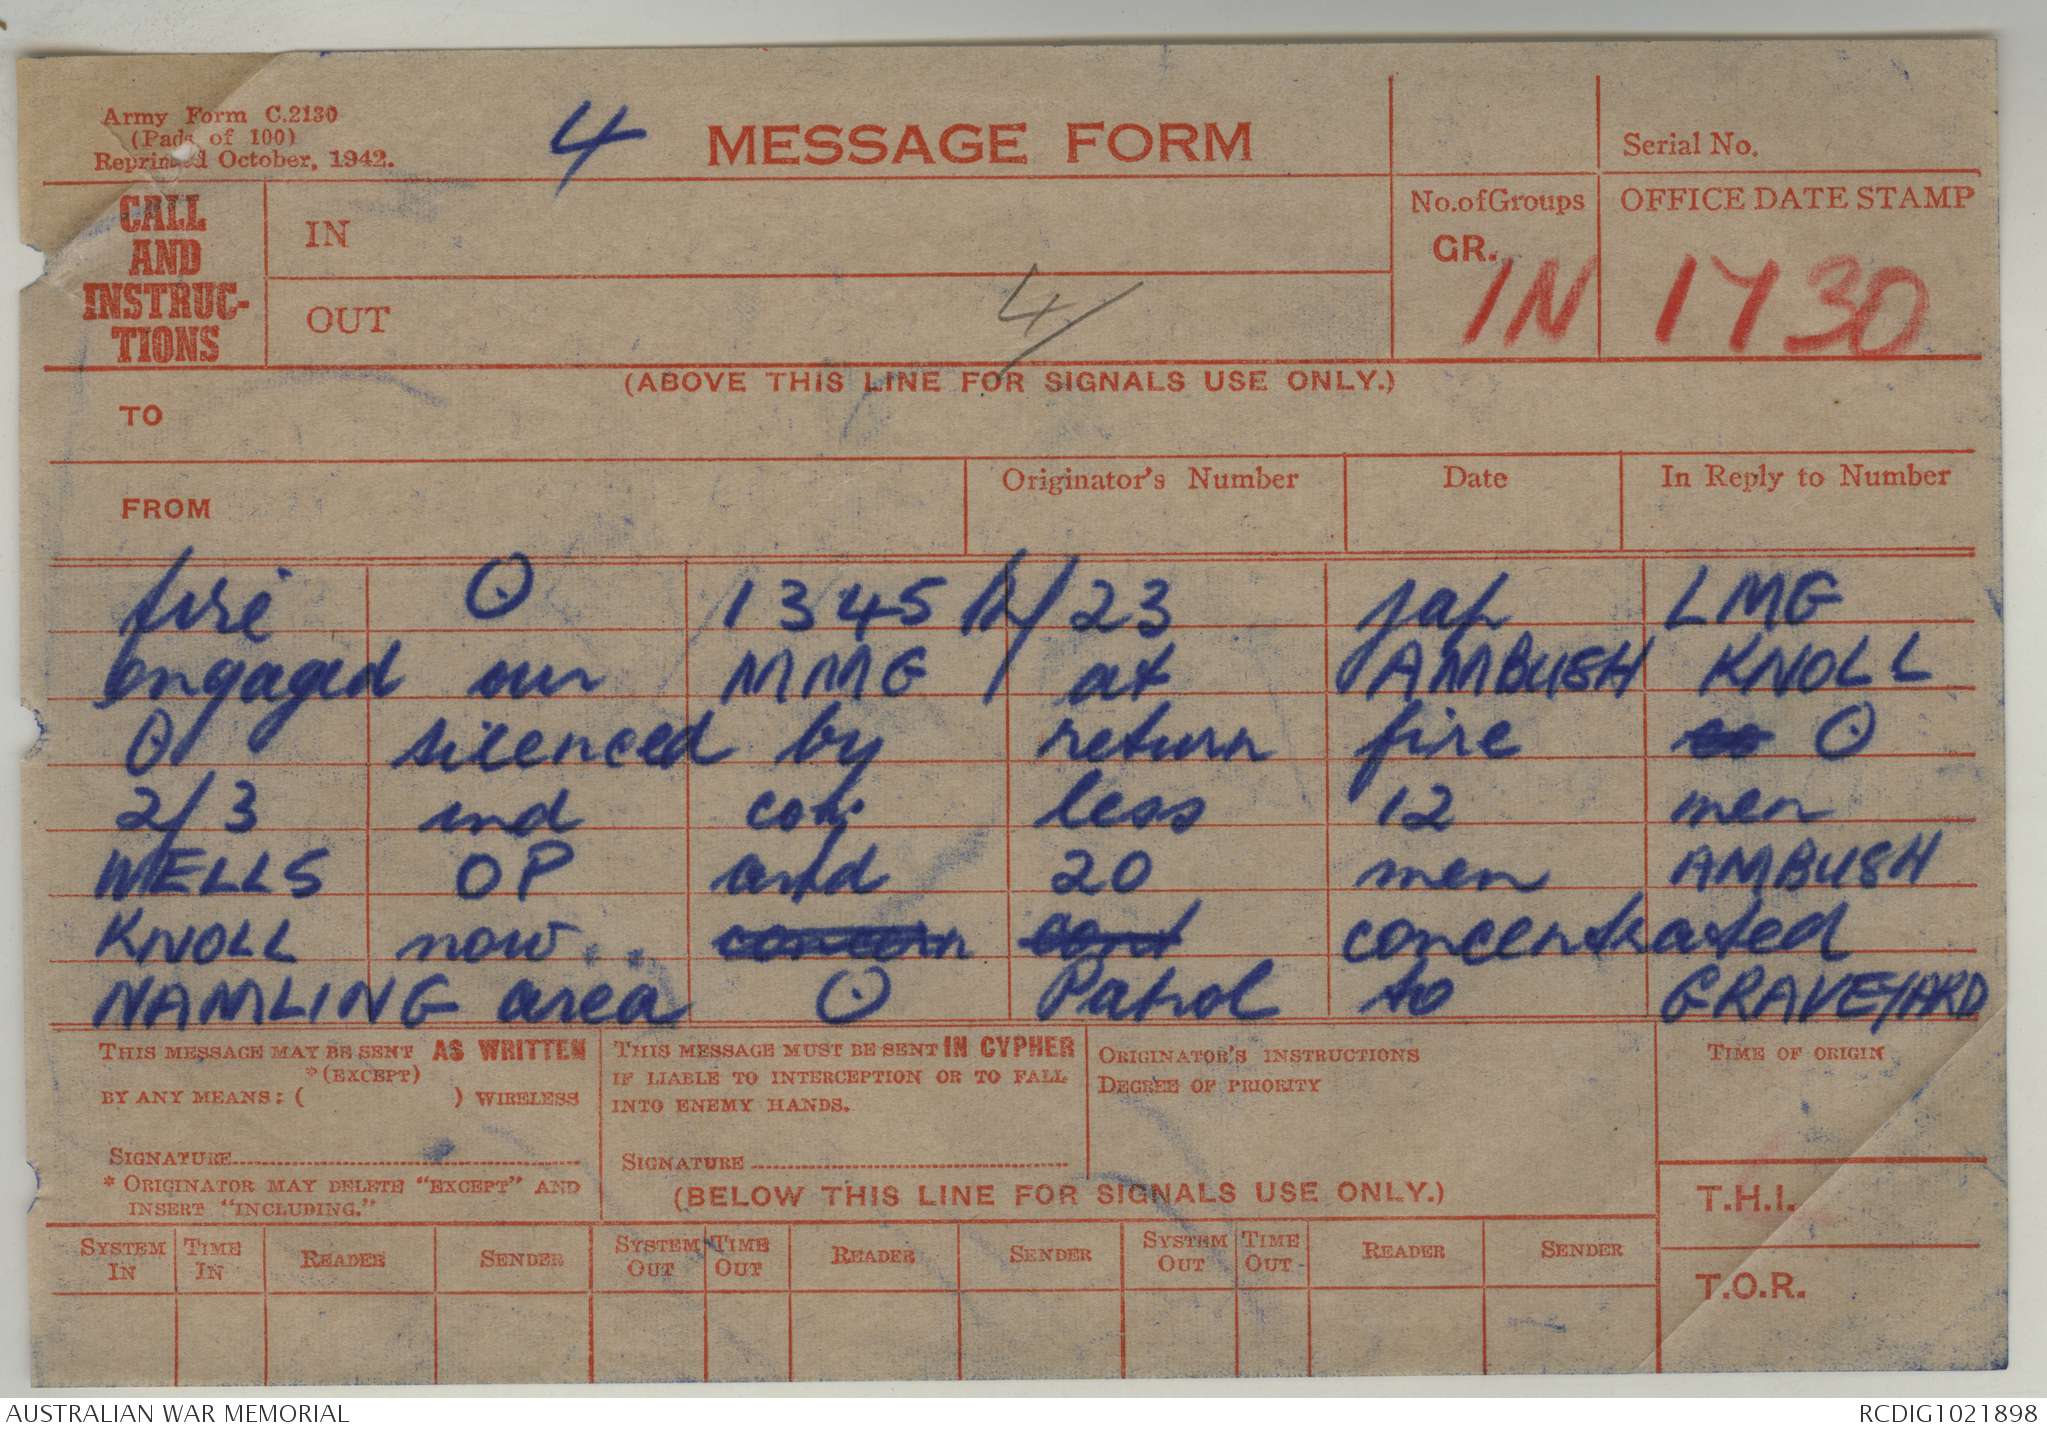 Army Form C.2130
(Pads of 100)
Reprinted October, 1942.
4
MESSAGE FORM
Serial No.
CALL AND INSTRUC-TIONS
IN
OUT
4/
No. of Groups
GR.
OFFICE DATE STAMP
IN 1730
(ABOVE THIS LINE FOR SIGNALS USE ONLY.)
TO
FROM
Originator's Number
Date
In Reply to Number
fire ⊙ 1345 h/23 jap LMG
engaged our MMG at AMBUSH KNOLL
⊙ silenced by return fire ⊙
2/3 ind coy less 12 men
WELLS OP and 20 men AMBUSH
KNOLL now .. concern cont concentrated
NAMLING area ⊙ Patrol to GRAVEYARD
THIS MESSAGE MAY BE SENT AS WRITTEN
*(EXCEPT)
BY ANY MEANS: ( ) WIRELESS
SIGNATURE
* ORIGINATOR MAY DELETE "EXCEPT" AND
INSERT "INCLUDING."
THIS MESSAGE MUST BE SENT IN CYPHER
IF LIABLE TO INTERCEPTION OR TO FALL
INTO ENEMY HANDS.
SIGNATURE
ORIGINATOR'S INSTRUCTIONS
DEGREE OF PRIORITY
TIME OF ORIGIN
(BELOW THIS LINE FOR SIGNALS USE ONLY.)
T.H.I.
T.O.R.
SYSTEM IN
TIME IN
READER
SENDER
SYSTEM OUT
TIME OUT
READER
SENDER
SYSTEM OUT
TIME OUT
READER
SENDER
AUSTRALIAN WAR MEMORIAL
RCDIG1021898